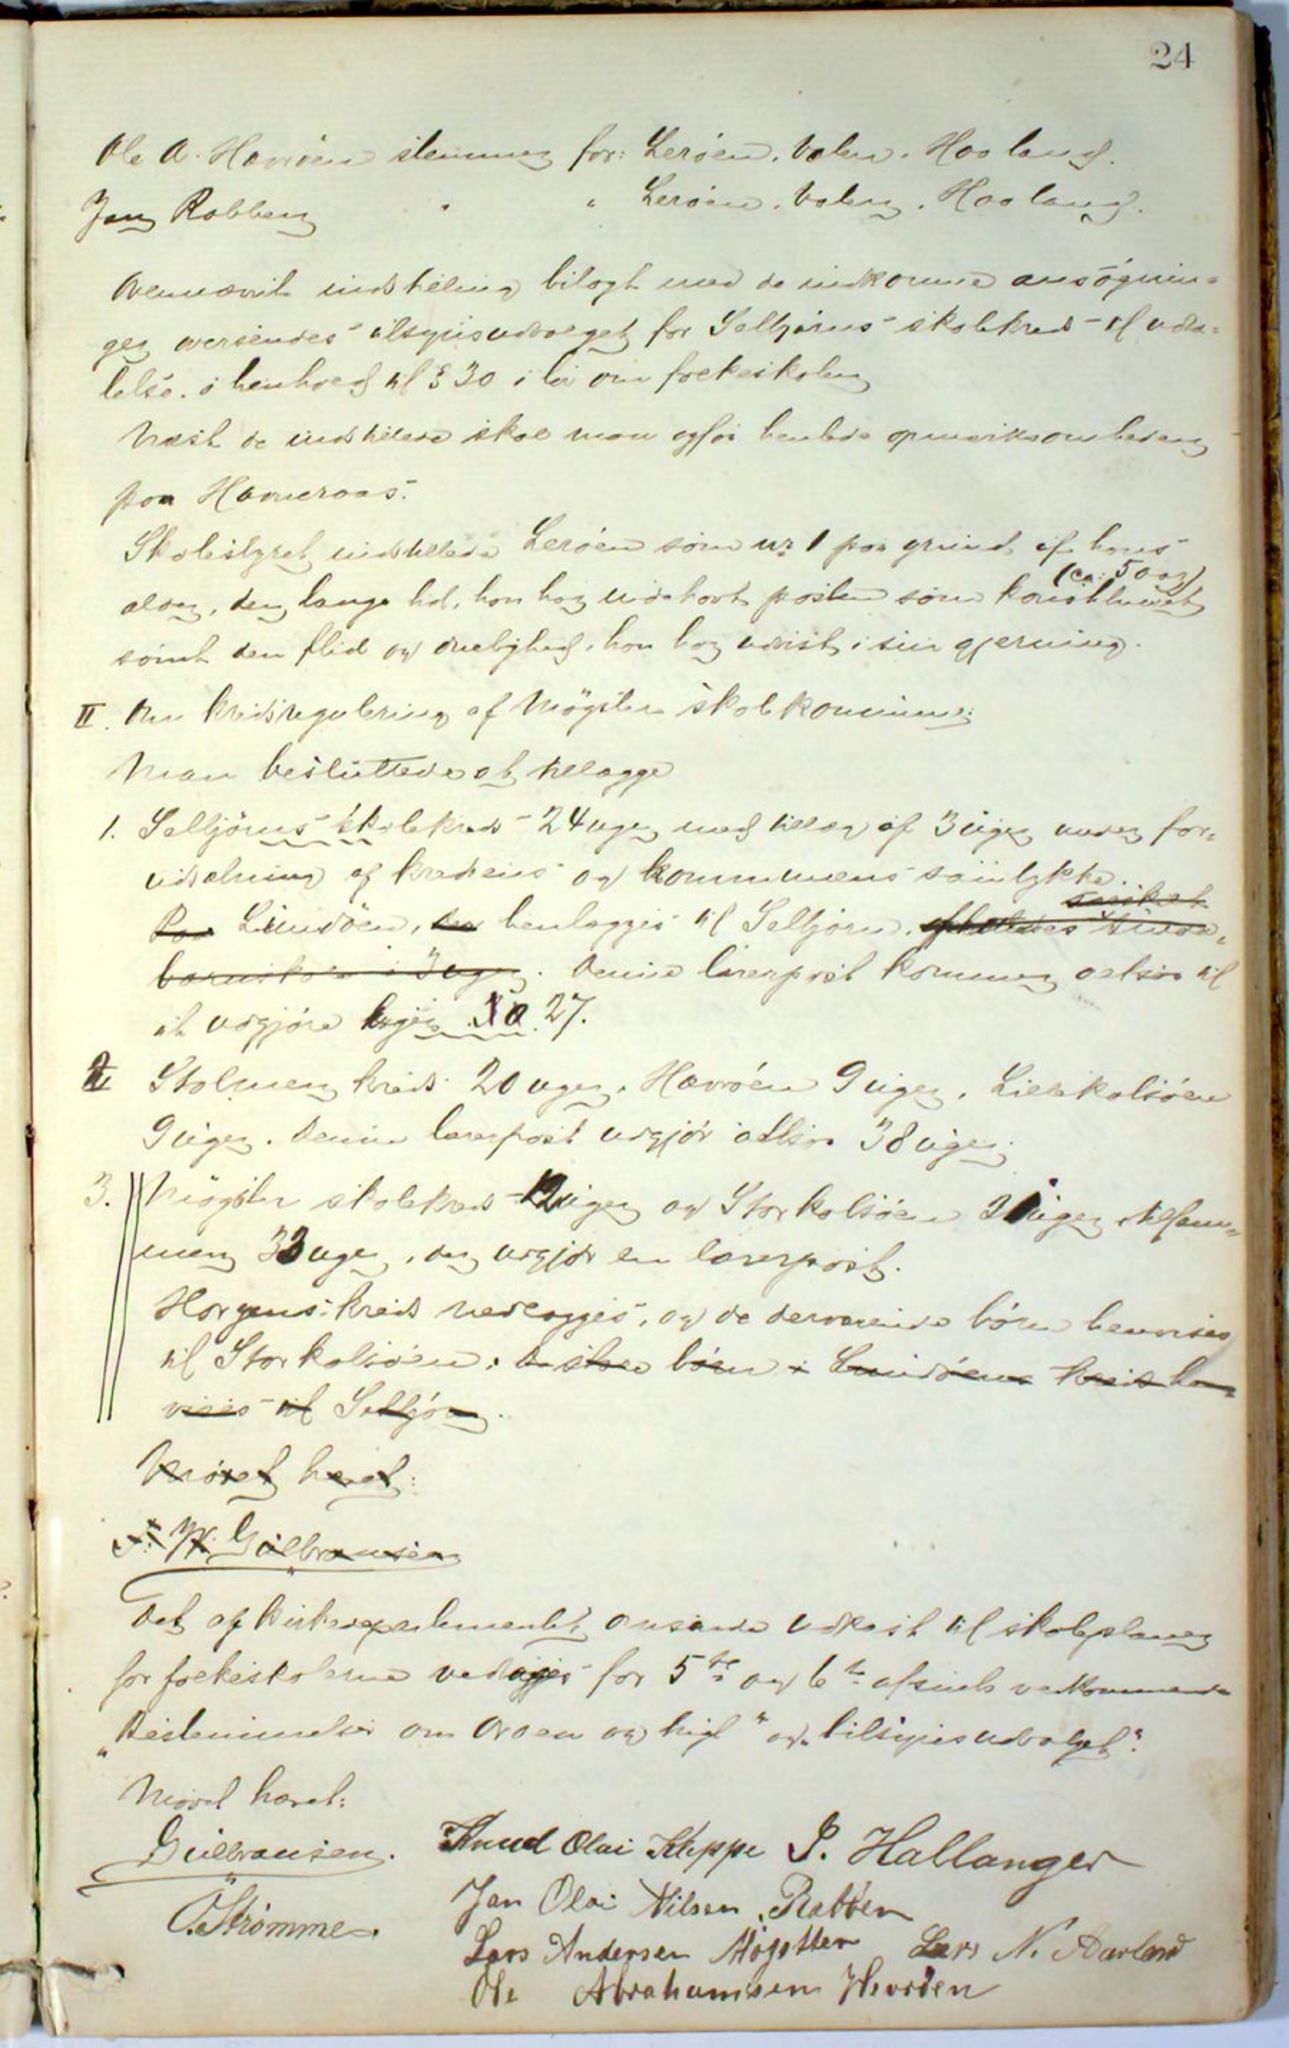 24
Ole A. Havröen stemmer for: Leröen, Valen, Haaland.
Jan Rabben " " Leröen, Valen, Haaland.
Ovennævnte indstilling bilagt med de indkomne ansögnin-
ger oversendes tilsynsudvalget for Selbjörns skolekreds til udta-
lelse i henhold til § 30 i lov om folkeskolen
Næst de indstillede skal man ogsaa henlede opmerksomheden
paa Hammeraas.
Skolestyret indstillede Leröen som nr 1 paa grund af hans
(ca: 50 aar)
alder, den lange tid, han har indehavt posten som konstitueret
samt den flid og duelighed, han har udvist i sin gjerning.
II. Om kredsregulering af Mögster skolekommune:
Man besluttede at tillægge
1. Selbjörns skolekreds 24 uger med tillæg af 3 uger under for-
udsætning af kredsens og kommunens samtykke.
særskilt
Paa Lindöen, der henlægges til Selbjörn, afholdes smaa-
barnskole i 3 uger. Denne lærerpost kommer altsaa til
at udgjöre uger 27.
2 Stolmen kreds 20 uger, Havröen 9 uger, Lillekalsöen
9 uger. Denne lærerpost udgjör altsaa 38 uger.
3. Mögster skolekreds 12 uger og Storkalsöen 21 uger tilsam-
men 33 uger, der udgjör en lærerpost.
Horgens kreds nedlægges, og de derværende börn henvises
til Storkalsöen. börn i Lindöens kreds hen-
vises til Selbjörn.
Mödet hævet:
Gulbransen
Det af kirkedepartementet omsendte udkast til skoleplaner
for folkeskolerne vedtoges for 5te og 6te afsnits vedkommende
"Bestemmelser om orden og tugt" og "tilsynsudvalget".
Mödet hævet:
Gulbransen. Knud Olai Kleppe P. Hallanger
O. Strømme. Jan Olai Nilsen Rabben
Lars Andersen Møgster Lars N. Aarland
Ole Abrahamsen Hevröen